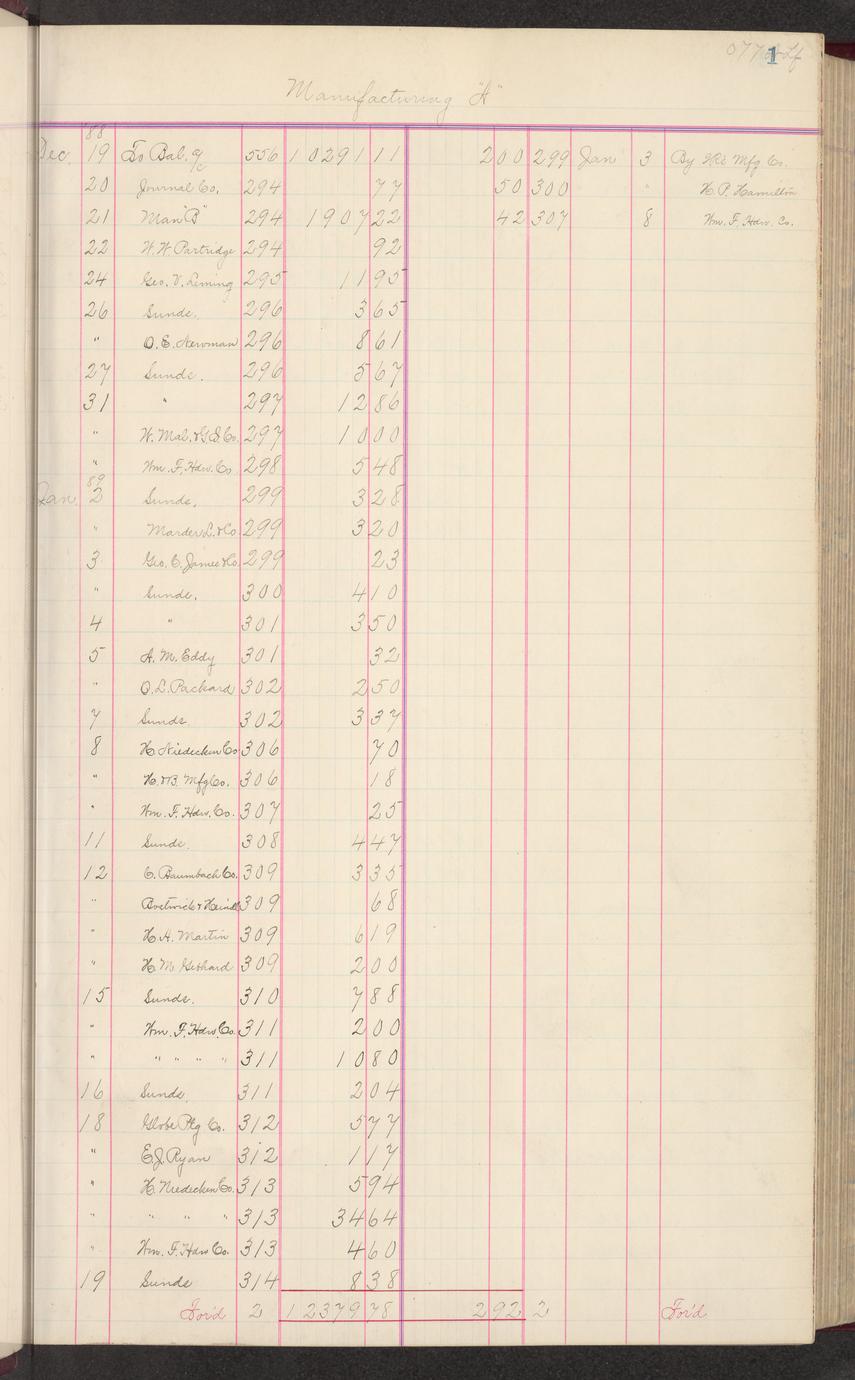 1
Manufacturing "A"
'88
Dec. 19 To Bal. a/c 556 10291 11 2 00 299 Jan 3 By Mfg Co.
20 Journal Co. 294 77 50 300 " H. P. Hamilton
21 Man "B" 294 1907 22 42 307 8 Wm. F. Hdw. Co.
22 W. W. Partridge 294 92
24 Geo. V. Leming 295 11 95
26 Sunds. 296 3 65
" O. E. Newman 296 8 61
27 Sunds. 296 5 67
31 " 297 12 86
" W. Mal. & G. I. Co. 297 10 00
" Wm. F. Hdw. Co. 298 5 48
89
Jan. 2 Sunds. 299 3 28
" Marder L. & Co 299 3 20
3 Geo. C. James & Co. 299 23
" Sunds. 300 4 10
4 " 301 3 50
5 A. M. Eddy 301 32
" O. L. Packard 302 2 50
7 Sunds. 302 3 37
8 H. Niedecken Co 306 70
" H. & B. Mfg Co. 306 18
" Wm. F. Hdw. Co. 307 25
11 Sunds. 308 4 47
12 C. Baumbach Co. 309 3 35
" Bostwick & 309 68
" H. A. Martin 309 6 19
" H. M. Gebhard 309 2 00
15 Sunds. 310 7 88
" Wm. F. Hdw. Co. 311 2 00
" " " " " 311 10 80
16 Sunds. 311 2 04
18 Globe Pkg Co. 312 5 77
" E. J. Ryan 312 1 17
" H. Niedecken Co. 313 5 94
" " " " 313 34 64
" Wm. F. Hdw Co. 313 4 60
19 Sunds 314 8 38
For'd 2 12379 78 2 92 2 For'd